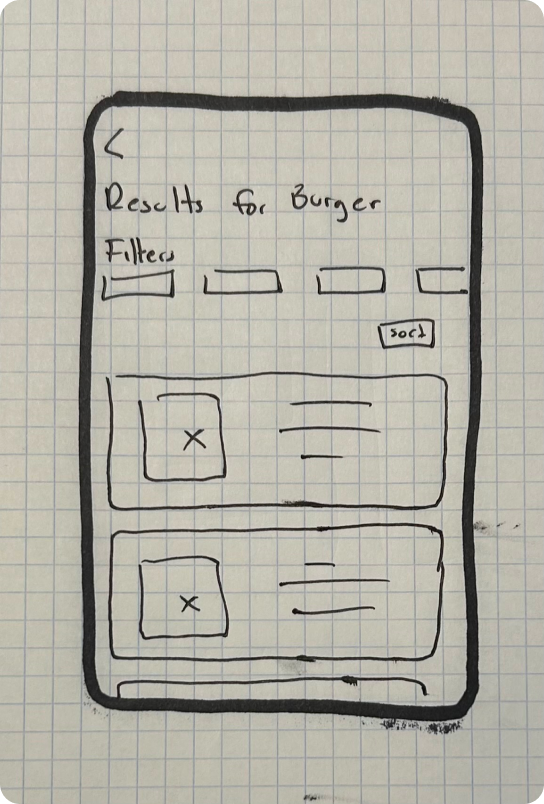 <
Results for Burger
Filters
sort